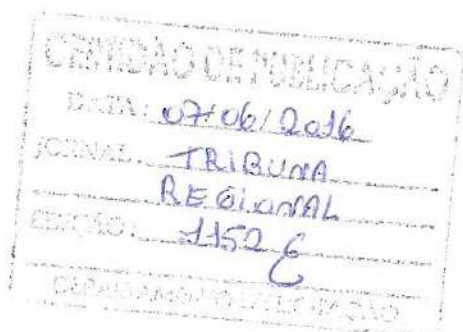 CERTIDÃO DE PUBLICAÇÃO
DATA: 07/06/2016
JORNAL: TRIBUNA
REGIONAL
EDIÇÃO: 1152
DEPARTAMENTO LICITAÇÃO